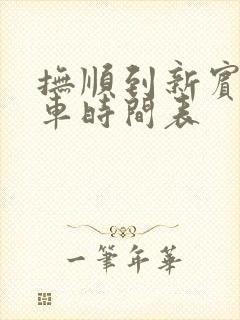 撫順到新賓
車時間表
一筆年華